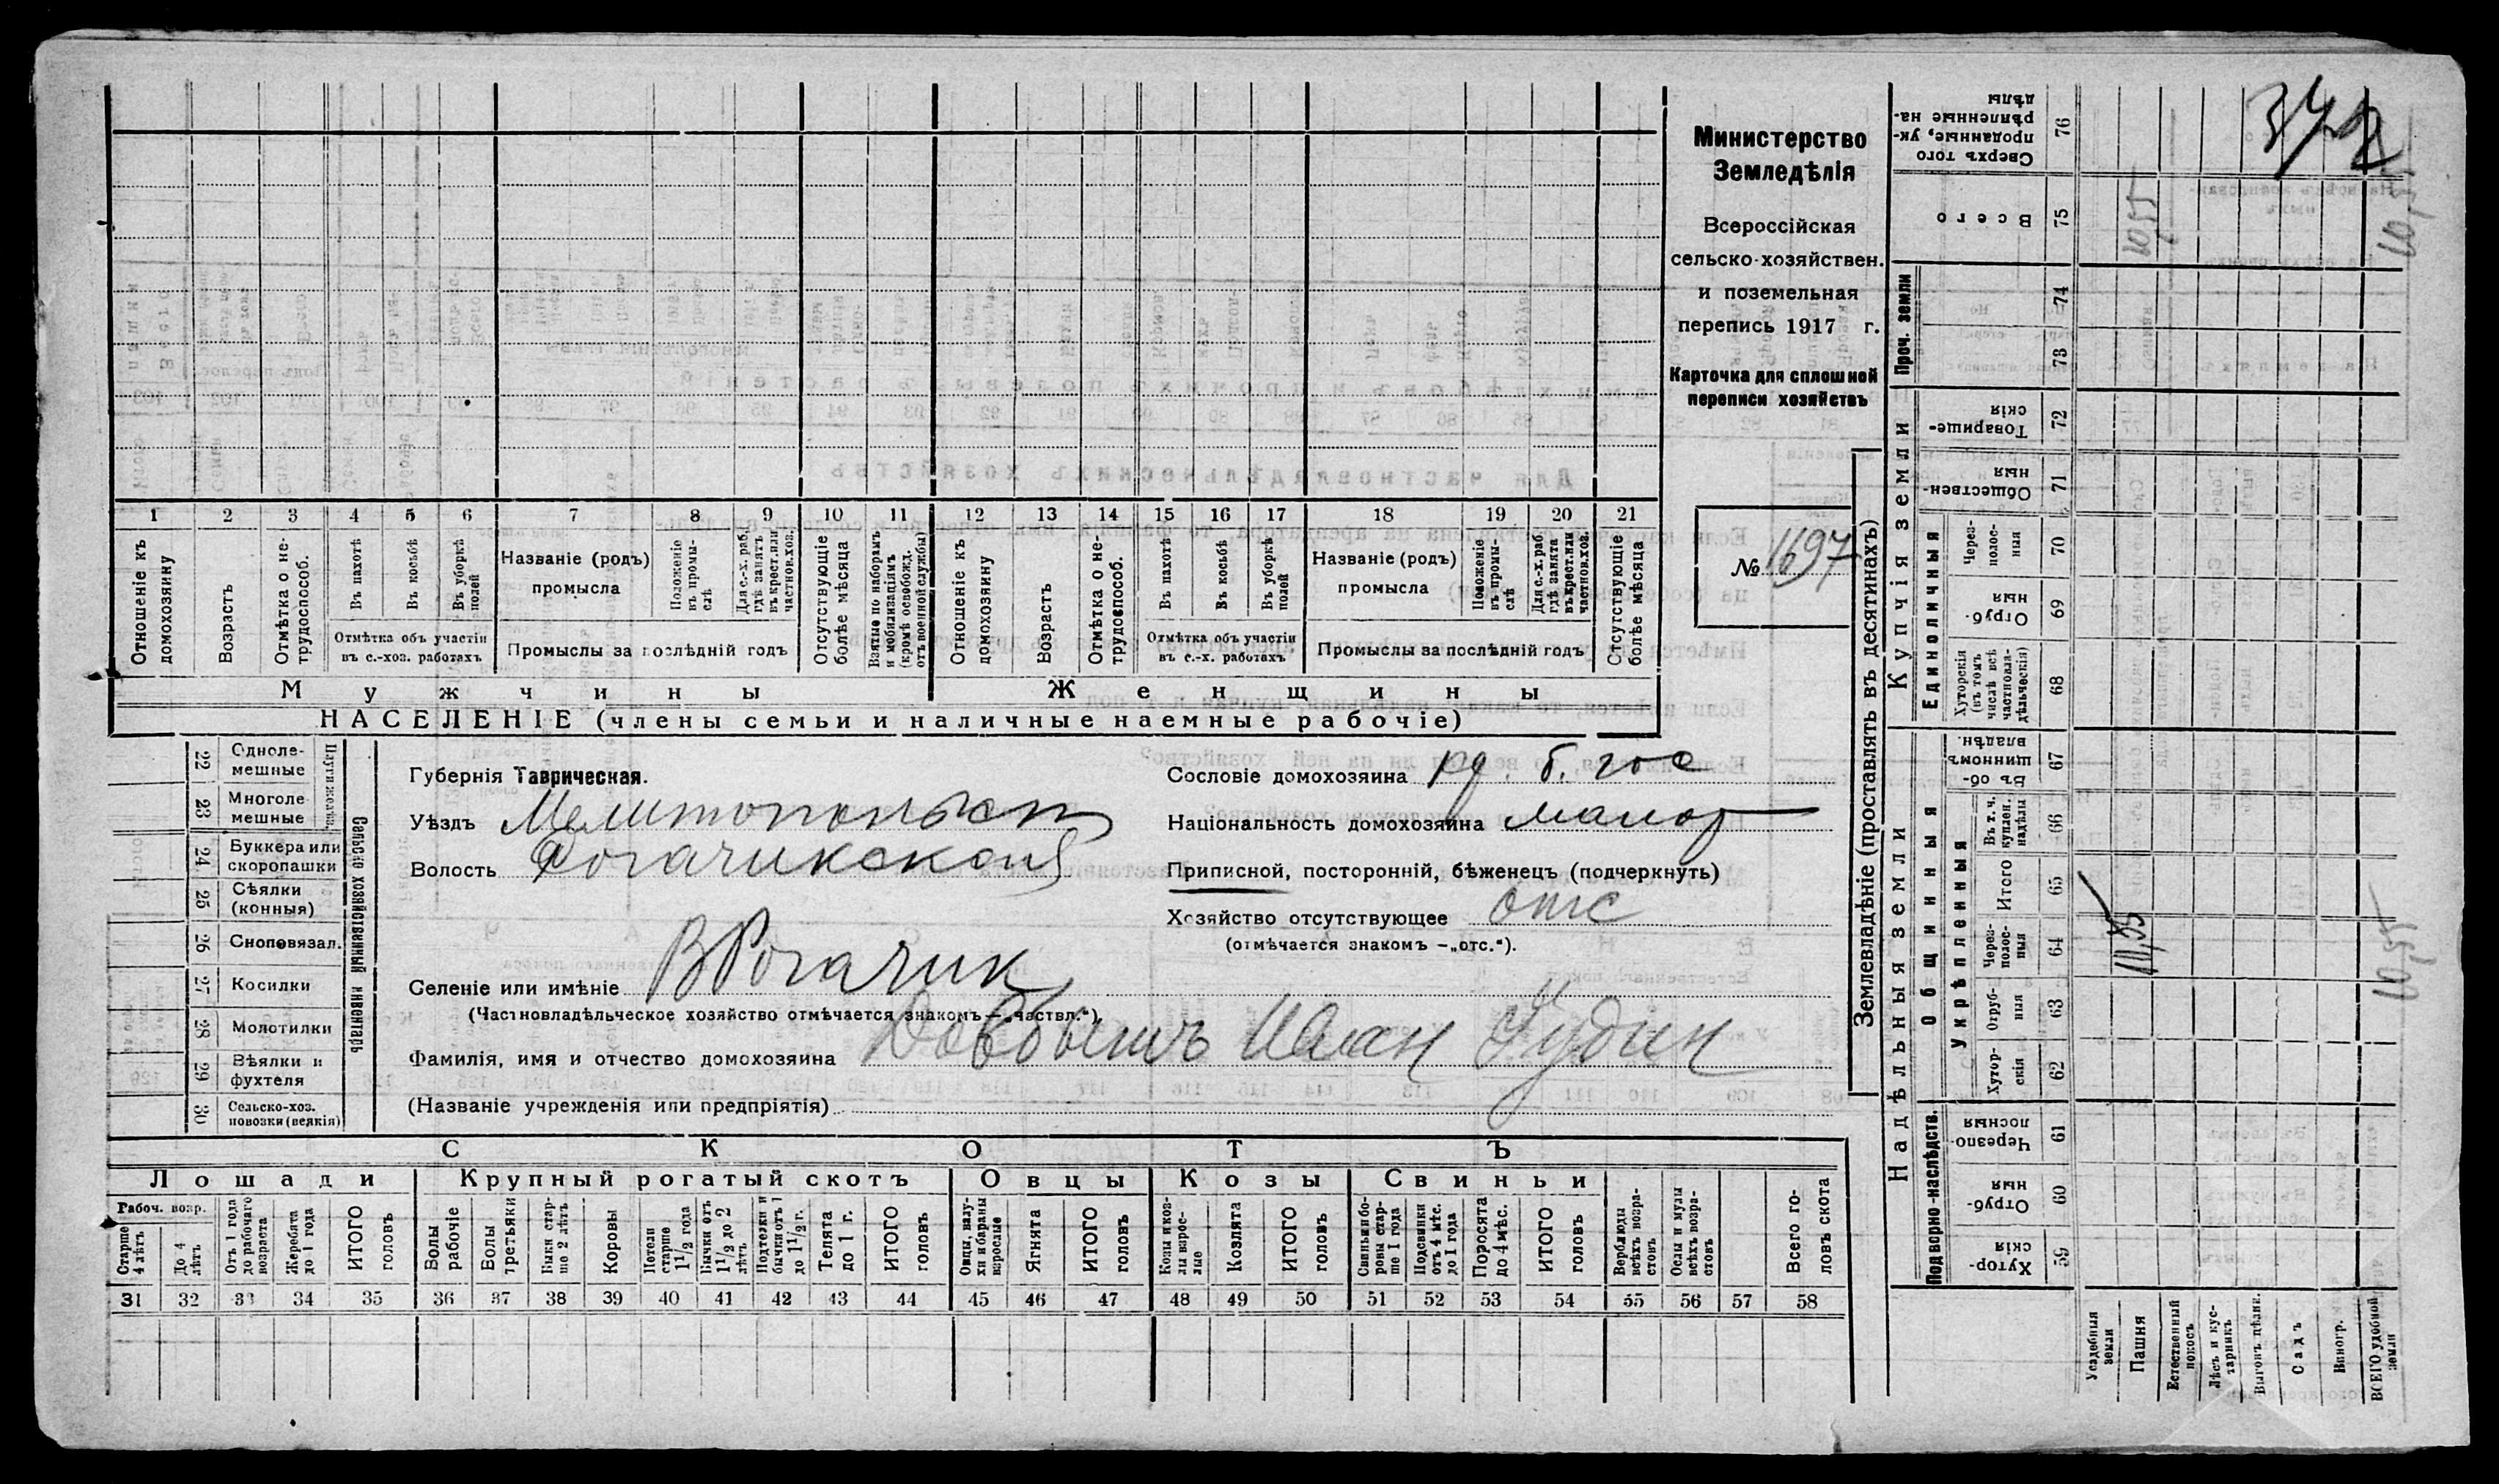 Министерство
Земледѣлія
Всероссійская
сельско-хозяйствен.
и поземельная
перепись 1917 г.
Карточка для сплошной
переписи хозяйствъ
№ 1697
1 2 3 4 5 6 7 8 9 10 11 12 13 14 15 16 17 18 19 20 21
Отношеніе къ домохозяину
Возрастъ
Отмѣтка о нетрудоспособ.
Въ пахотѣ
Въ косьбѣ
Въ уборкѣ полей
Отмѣтка объ участіи
въ с.-хоз. работахъ
Названіе (родъ)
промысла
Положеніе въ промыслѣ
Для с.-х. раб. гдѣ занятъ въ крест. или частнов. хоз.
Промыслы за послѣдній годъ
Отсутствующіе болѣе мѣсяца
Взятые по наборамъ и мобилизаціямъ (кромѣ освобожд. отъ военной службы)
Отношеніе къ домохозяину
Возрастъ
Отмѣтка о нетрудоспособ.
Въ пахотѣ
Въ косьбѣ
Въ уборкѣ полей
Отмѣтка объ участіи
въ с.-х. работахъ
Названіе (родъ)
промысла
Положеніе въ промыслѣ
Для с.-х. раб. гдѣ занята въ крест. или частнов. хоз.
Промыслы за послѣдній годъ
Отсутствующіе болѣе мѣсяца
Мужчины Женщины
НАСЕЛЕНІЕ (члены семьи и наличные наемные рабочіе)
Сельско хозяйственный инвентарь
Плуги желѣзн.
22 Однолемешные
23 Многолемешные
24 Буккера или скоропашки
25 Сѣялки (конныя)
26 Сноповязал.
27 Косилки
28 Молотилки
29 Вѣялки и фухтеля
30 Сельско-хоз. повозки (всякія)
Губернія Таврическая.
Уѣздъ Мелитопольск
Волость Рогачикской
Селеніе или имѣніе В Рогачик
(Частновладѣльческое хозяйство отмѣчается знакомъ — „частвл.“)
Фамилія, имя и отчество домохозяина Довбышъ Иван Юдин
(Названіе учрежденія или предпріятія)
Сословіе домохозяина кр. б. гос
Національность домохозяина малор
Приписной, посторонній, бѣженецъ (подчеркнуть)
Хозяйство отсутствующее отс
(отмѣчается знакомъ —„отс.“).
СКОТЪ
Лошади Крупный рогатый скотъ Овцы Козы Свиньи
Рабоч. возр.
Старше 4 лѣтъ
До 4 лѣтъ
Отъ 1 года до рабочаго возраста
Жеребята до 1 года
ИТОГО головъ
Волы рабочіе
Волы третьяки
Быки старше 2 лѣтъ
Коровы
Нетели старше 1 1/2 года
Бычки отъ 1 1/2 до 2 лѣтъ
Подтелки и бычки отъ 1 до 1 1/2 г.
Телята до 1 г.
ИТОГО головъ
Овцы, валухи и бараны взрослые
Ягнята
ИТОГО головъ
Козы и козлы взрослые
Козлята
ИТОГО головъ
Свиньи и боровы старше 1 года
Подсвинки отъ 4 мѣс. до 1 года
Поросята до 4 мѣс.
ИТОГО головъ
Верблюды всѣхъ возрастовъ
Ослы и мулы всѣхъ возрастовъ
Всего головъ скота
31 32 33 34 35 36 37 38 39 40 41 42 43 44 45 46 47 48 49 50 51 52 53 54 55 56 57 58
Землевладѣніе (проставлять въ десятинахъ)
Надѣльныя земли Купчія земли Проч. земли
Подворно-наслѣдств.
Общинныя
Укрѣпленныя
Единоличныя
59 Хуторскія
60 Отрубныя
61 Черезполосныя
62 Хуторскія
63 Отрубныя
64 Черезполосныя
65 Итого
66 Въ т. ч. куплен. надѣлы
67 Въ общинномъ владѣн.
68 Хуторскія (въ томъ числѣ всѣ частновладѣльческія)
69 Отрубныя
70 Черезполосныя
71 Общественныя
72 Товарищескія
73
74
75 Всего
76 Сверхъ того проданные, укрѣпленные надѣлы
Усадебныя земли
Пашня
Естественный покосъ
Лѣсъ и кустарникъ
Выгонъ цѣлин.
Садъ
Виногр.
ВСЕГО удобной земли
10,55
10,55
10,55